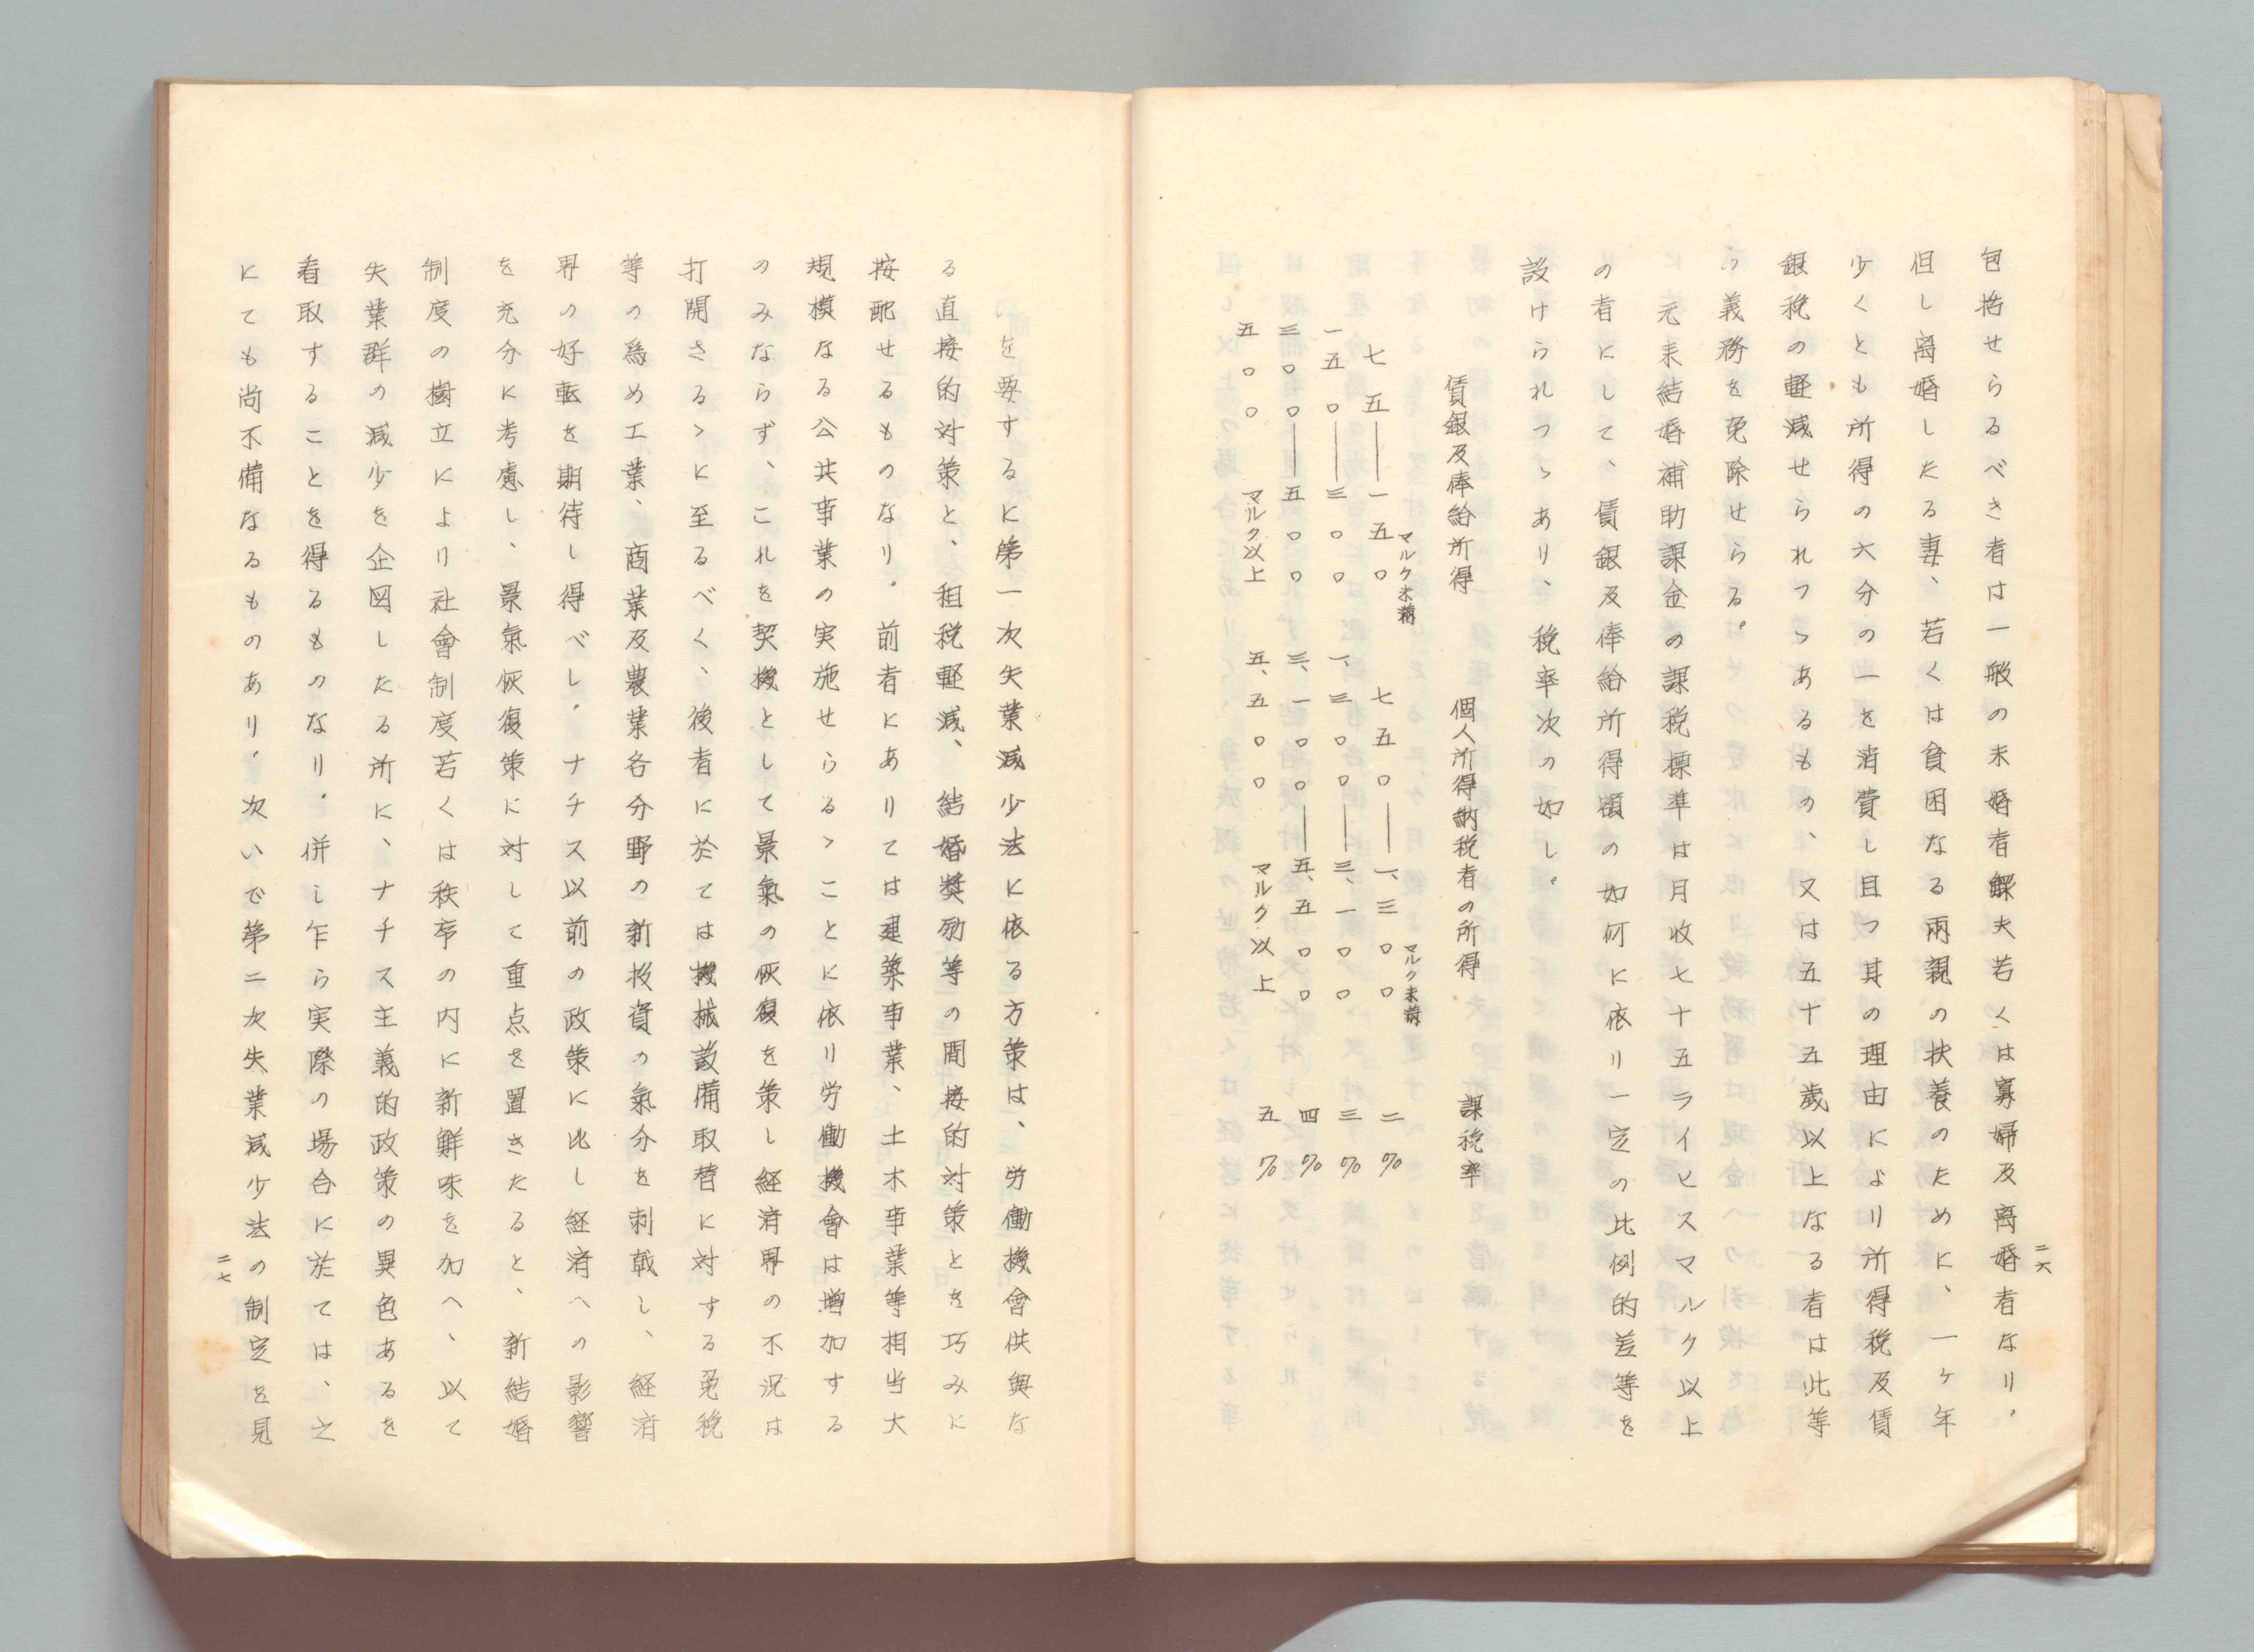 二六
包括せらるべき者は一般の未婚者鰥夫若くは寡婦及离婚者なり。
但し离婚したる妻、若くは貧困なる兩親の扶養のために、一ヶ年
少くとも所得の六分の一を消費し且つ其の理由により所得税及賃
銀税の軽減せられつゝあるもの、又は五十五歲以上なる者は此等
の義務を免除せらる。
元来結婚補助課金の課税標準は月收七十五ライヒスマルク以上
の者にして、賃銀及俸給所得額の如何に依り一定の比例的差等を
設けられつゝあり、税率次の如し。
賃銀及俸給所得　個人所得納税者の所得　課税率
七五―一五〇マルク未満　七五〇―一、三〇〇マルク未満　二%
一五〇―三〇〇　一、三〇〇―三、一〇〇　三%
三〇〇―五〇〇　三、一〇〇―五、五〇〇　四%
五〇〇マルク以上　五、五〇〇マルク以上　五%
を要するに第一次失業減少法に依る方策は、労働機會供與な
る直接的対策と、租税軽減、結婚奬励等の間接的対策とを巧みに
按配せるものなり。前者にありては建築事業、土木事業等相当大
規模なる公共事業の実施せらるゝことに依り労働機會は増加する
のみならず、これを契機として景氣の恢復を策し経済界の不況は
打開さるゝに至るべく、後者に於ては機械設備取替に対する免税
等の為め工業、商業及農業各分野の新投資の氣分を刺戟し、経済
界の好転を期待し得べし。ナチス以前の政策に比し経済への影響
を充分に考慮し、景氣恢復策に対して重点を置きたると、新結婚
制度の樹立により社會制度若くは秩序の内に新鮮味を加へ、以て
失業群の減少を企図したる所に、ナチス主義的政策の異色あるを
看取することを得るものなり。併し乍ら実際の場合に於ては、之
にても尚不備なるものあり。次いで第二次失業減少法の制定を見
二七